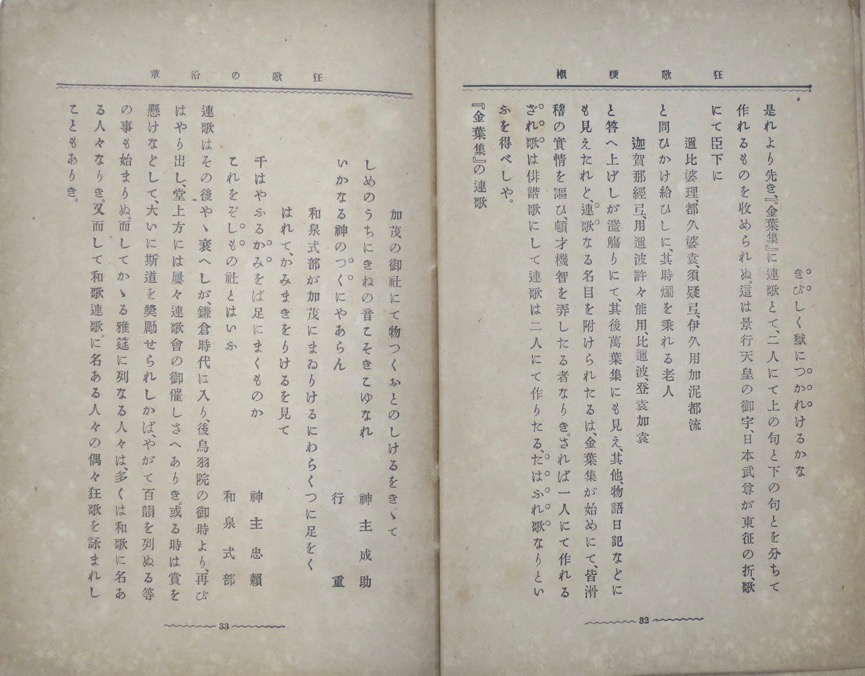 狂歌梗概
きびしく獄につかれけるかな
是れより先き『金葉集』に連歌とて、二人にて上の句と下の句とを分ちて
作れるものを收められぬ。這は景行天皇の御宇、日本武尊が東征の折、歌
にて臣下に
邇比婆理、都久婆袁須疑弖、伊久用加泥都流
と問ひかけ給ひしに、其時燭を乘れる老人
迦賀那經弖、用邇波許々能用、比邇波、登袁加袁
と答へ上げしが濫觴りにて、其後萬葉集にも見え、其他、物語日記などに
も見えたれと、連歌なる名目を附けられたるは、金葉集が始めにて、皆滑
稽の實情を謳ひ、頓才機智を弄したる者なりき。されば一人にて作れる
ざれ歌は俳諧歌にして連歌は二人にて作りたる、たはふれ歌なりとい
ふを得べしや。
『金葉集』の連歌
32
狂歌の沿革
加茂の御社にて物つくおとのしけるをきゝて
神主成助
しめのうちにきねの音こそきこゆなれ
行重
いかなる神のつくにやあらん
和泉式部が加茂にまゐりけるにわらくつに足をく
はれて、かみまきをりけるを見て
神主忠賴
千はやふるかみをば足にまくものか
和泉式部
これをぞしもの社とはいふ
連歌はその後やゝ衰へしが、鎌倉時代に入り後鳥羽院の御時より、再び
はやり出し、堂上方には屢々連歌會の御催しさへあり き或る時は賞を
懸けなどして、大いに斯道を奬勵せられしかば、やがて百韻を列ぬる等
の事も始まりぬ。而してかゝる雅筵に列なる人々は、多くは和歌に名あ
る人々なりき。又而して和歌連歌に名ある人々の偶々狂歌を詠まれし
こともありき。
33